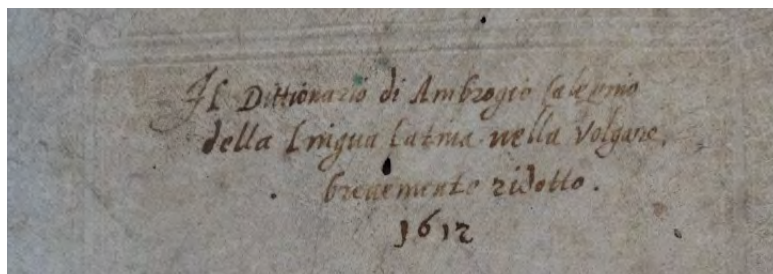 Il Dittionario di Ambrogio Calepino
della Lingua Latina nella Volgare.
brevemente ridotto.
1612